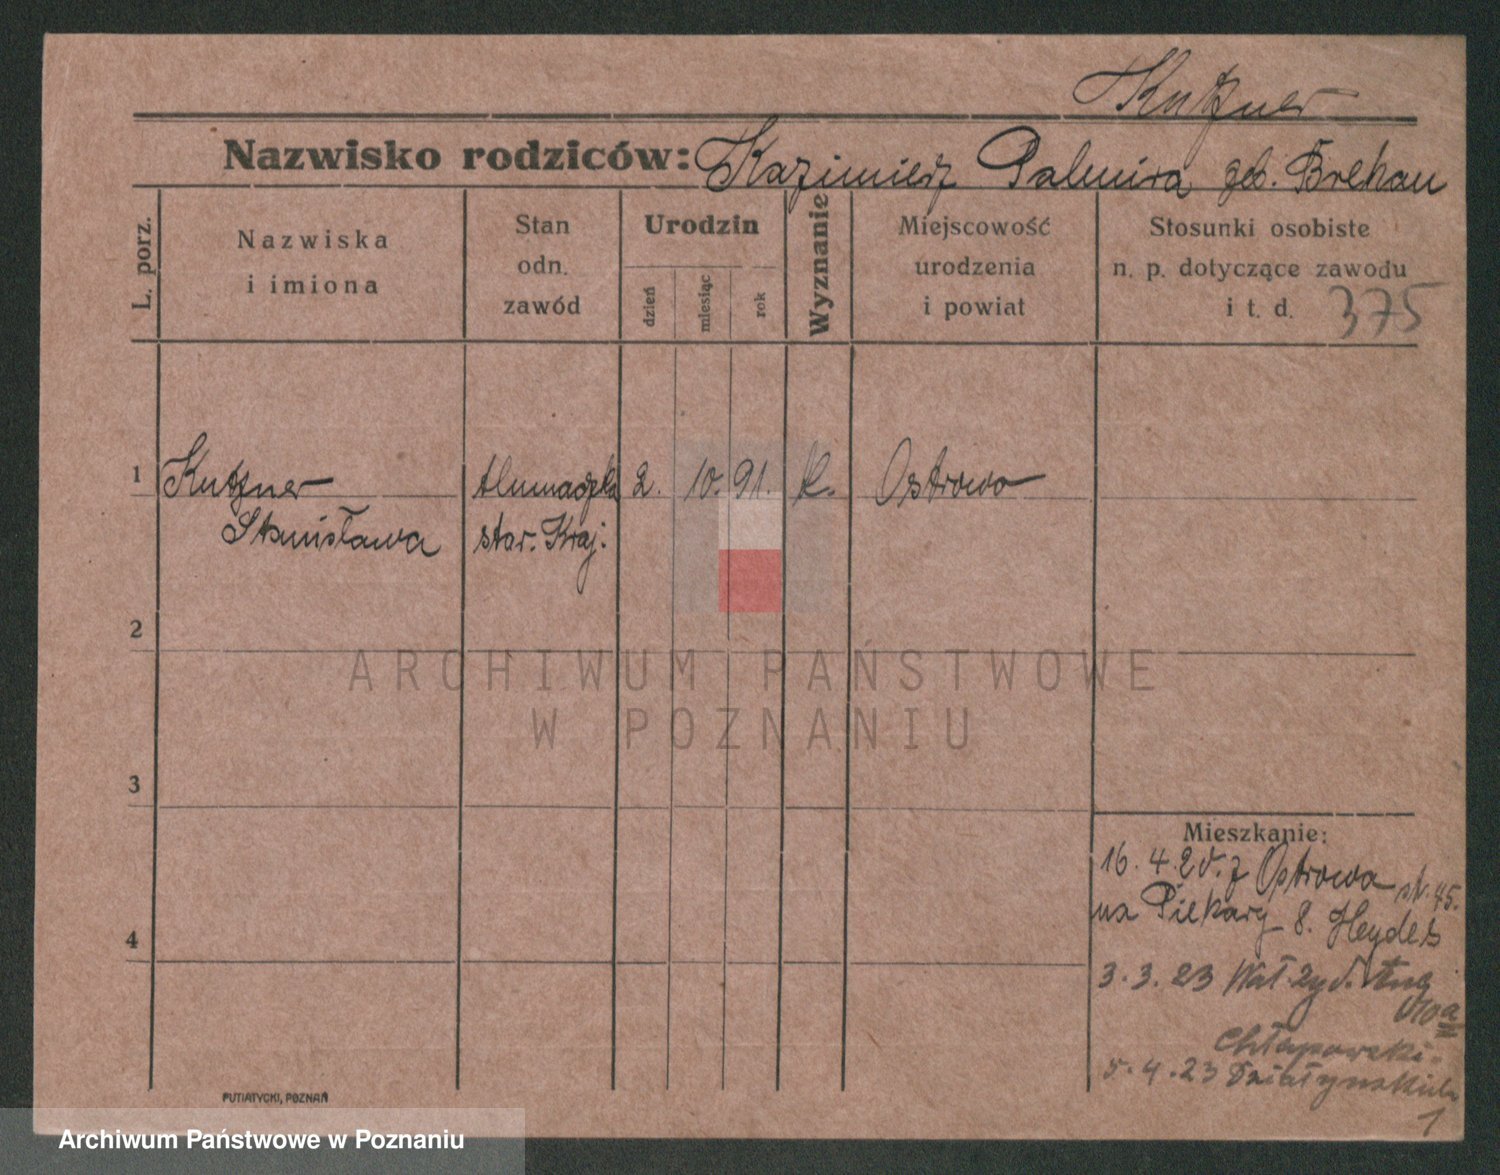 Kutzner
Nazwisko rodziców: Kazimierz Palmira geb. Brekau
L. porz.
Nazwiska
i imiona
Stan
odn.
zawód
Urodzin
dzień
miesiąc
rok
Wyznanie
Miejscowość
urodzenia
i powiat
Stosunki osobiste
n. p. dotyczące zawodu
i t. d. 375
1 Kutzner tłumaczka 2. 10. 91. k. Ostrowo
Stanisława star. Kraj:
2
ARCHIWUM PAŃSTWOWE
W POZNANIU
3
Mieszkanie:
16. 4. 20. z Ostrowa st. 45.
na Piekary 8. Heydes
4
3. 3. 23
Chłapowski-
5. 4. 23 Działyńskich
1
PUTIATYCKI, POZNAŃ
Archiwum Państwowe w Poznaniu